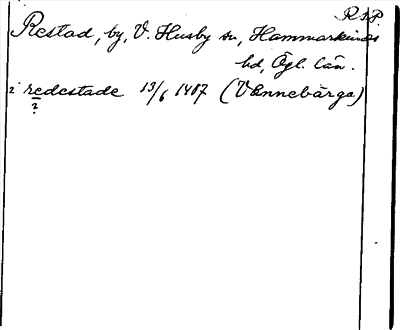 R S P
Restad, by, V. Husby sn, Hammarkinds
hd, Ögl. län.
i redestade 13/6 1487 (Vennebärga)
?